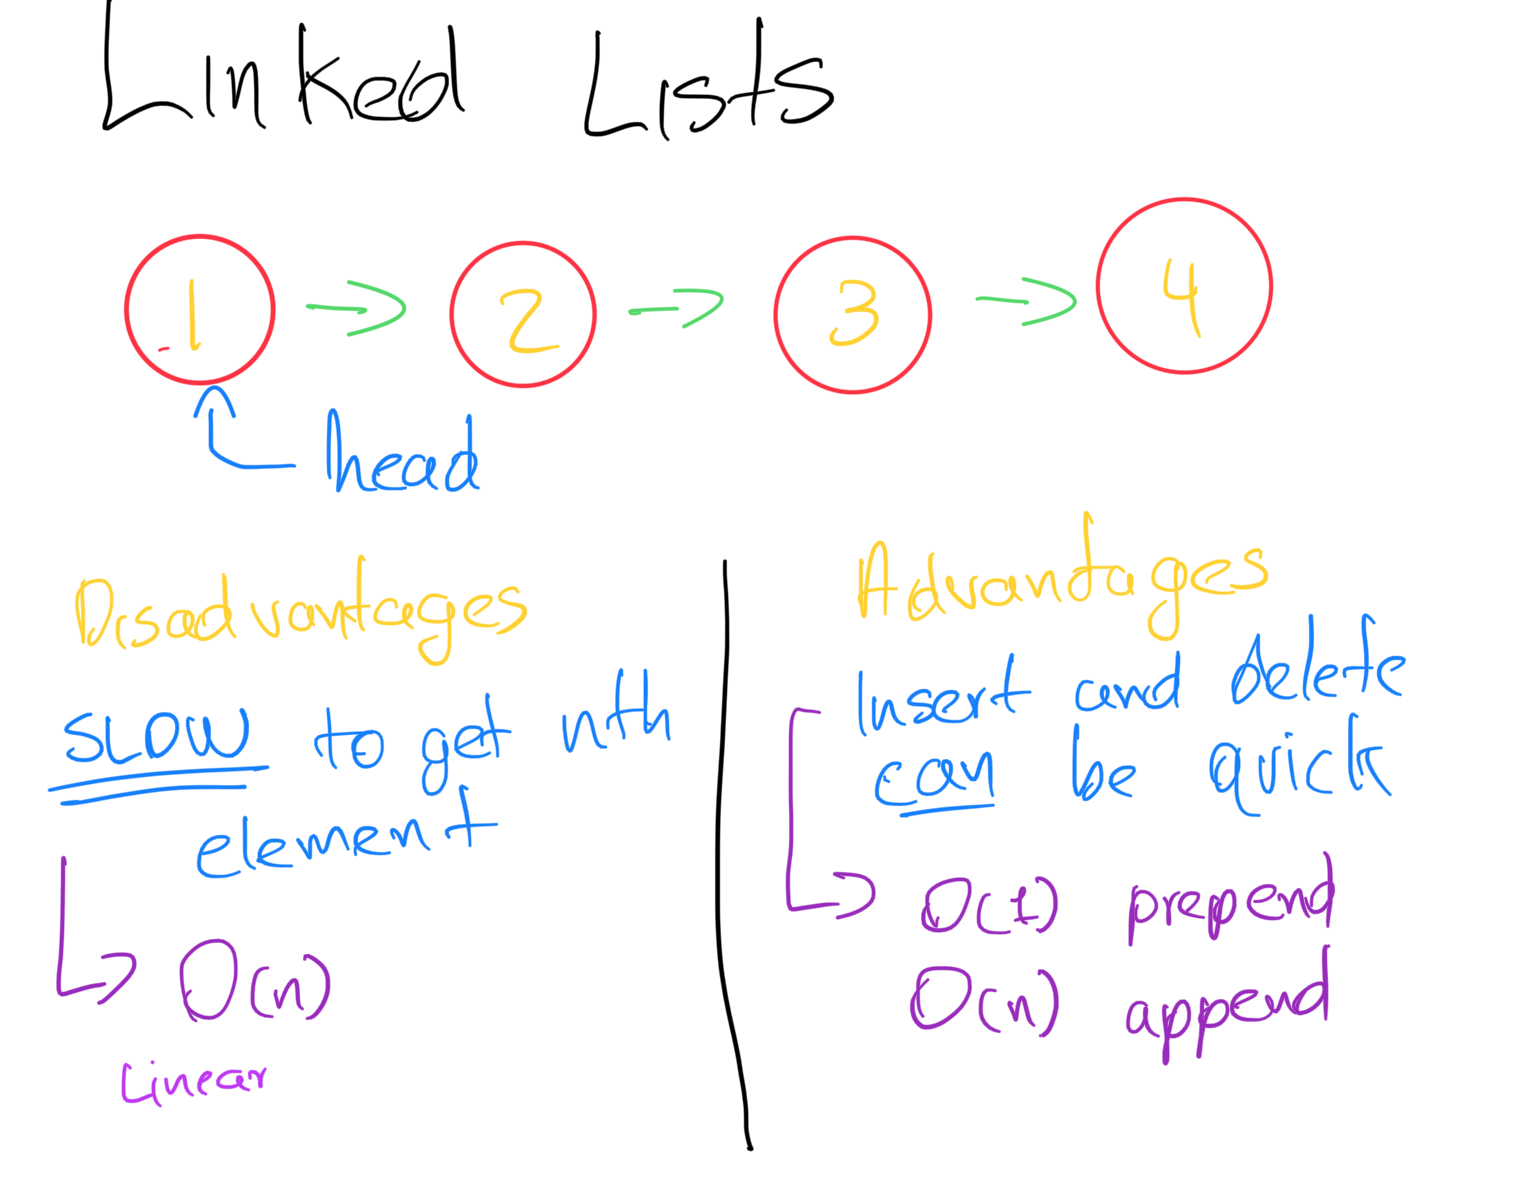 Linked Lists
1 → 2 → 3 → 4
head
Disadvantages
SLOW to get nth
element
O(n)
Linear
Advantages
Insert and delete
can be quick
O(1) prepend
O(n) append